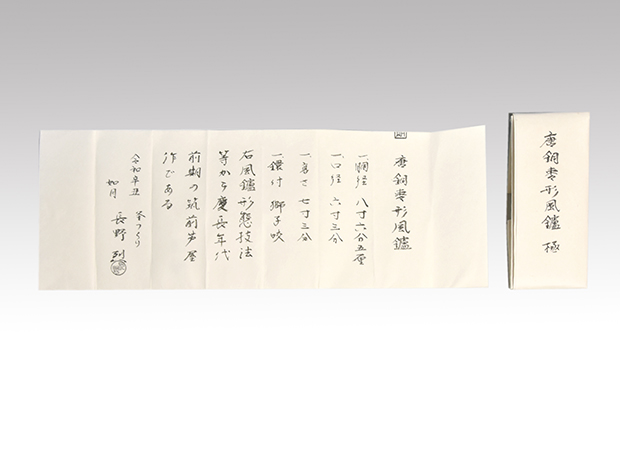 唐銅雲形風鑪
一、胴径 八寸六分五厘
一、口径 六寸三分
一、高さ 七寸三分
一、鐶付 獅子咬
右風鑪形態技法
等から慶長年代
前期の筑前芦屋
作である
令和辛丑 釜つくり
如月 長野 烈
唐銅雲形風鑪 極